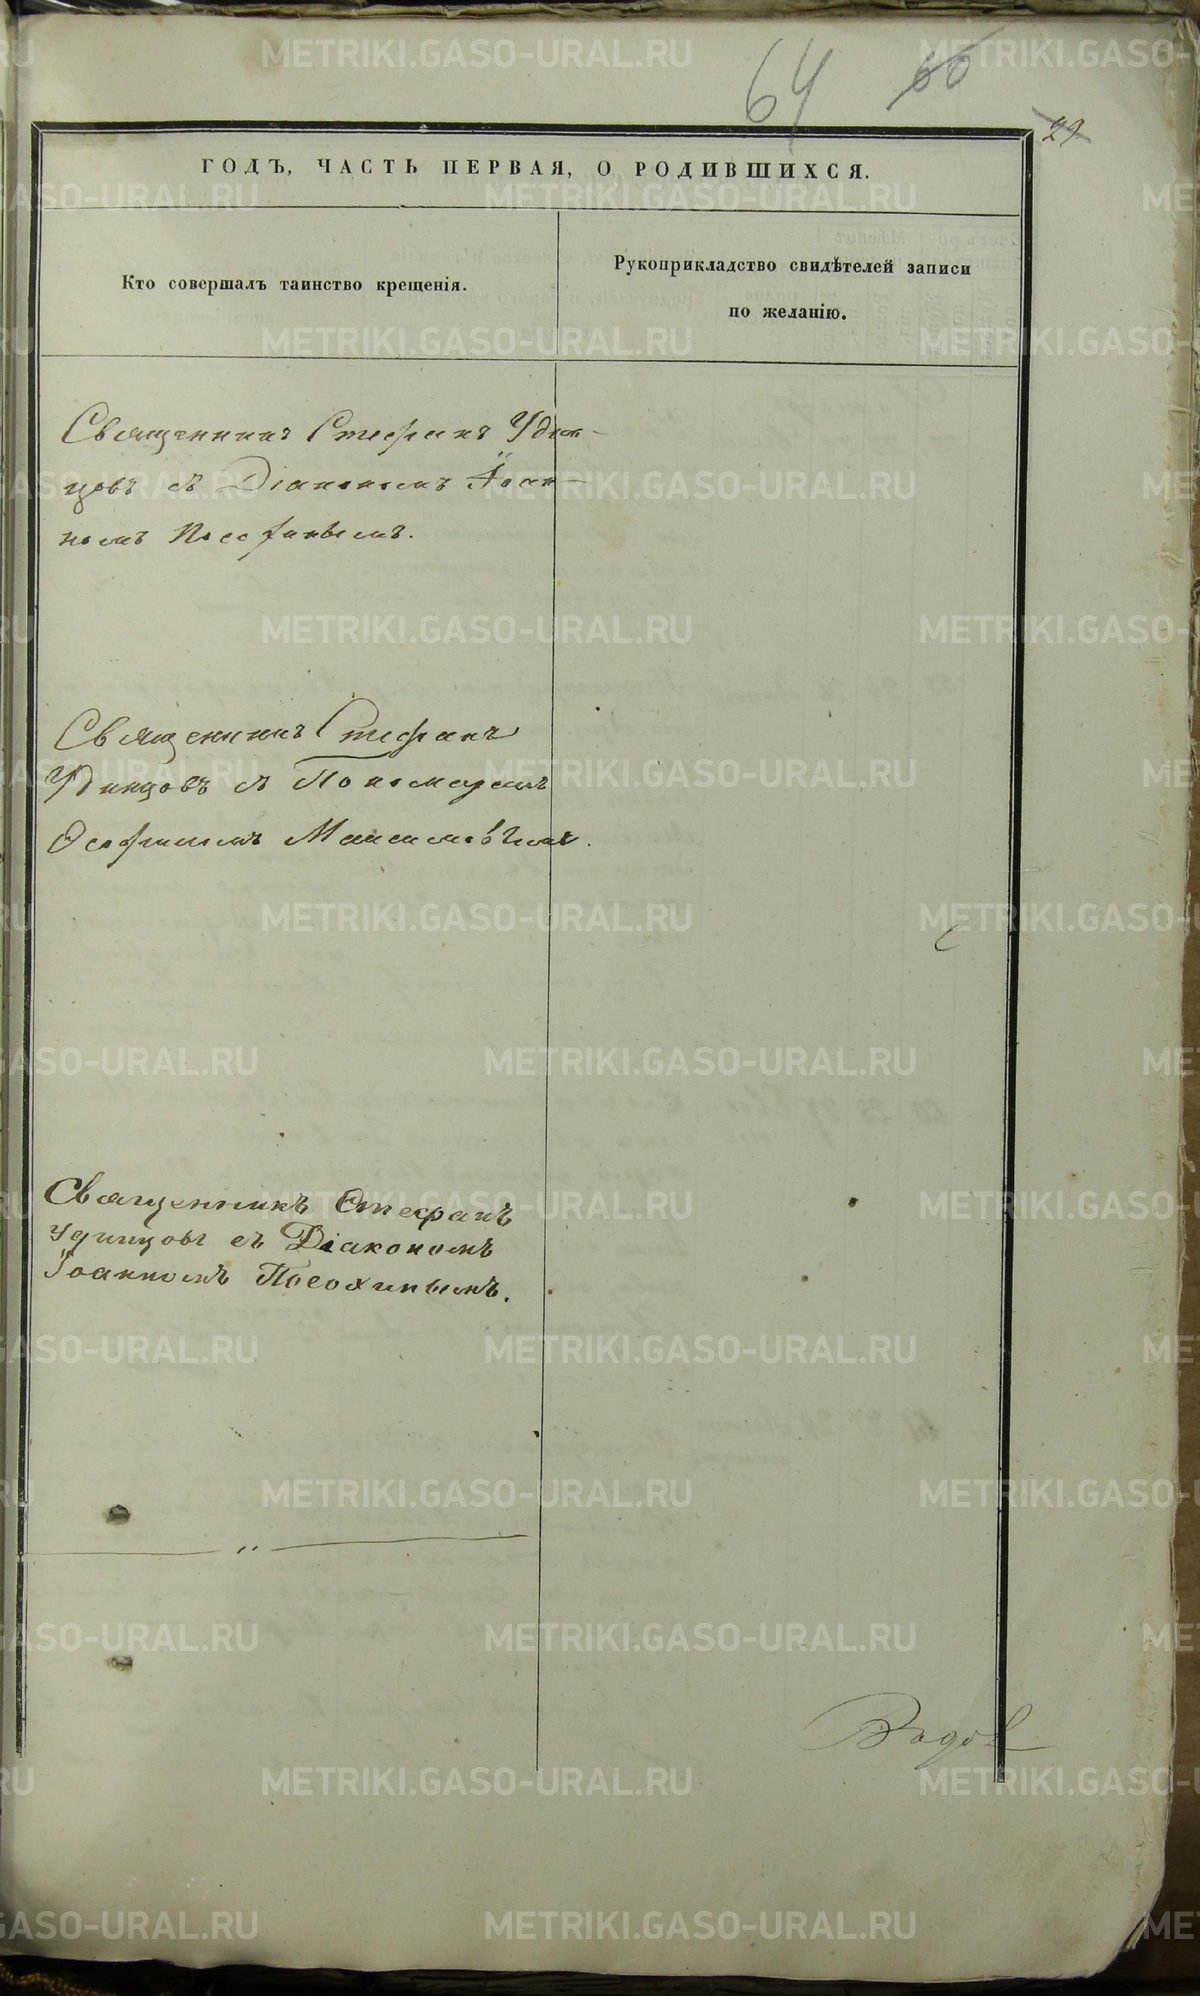 64 60
29
ГОДЪ, ЧАСТЬ ПЕРВАЯ, О РОДИВШИХСЯ.
Кто совершалъ таинство крещенія.
Рукоприкладство свидѣтелей записи
по желанію.
Священникъ Стефанъ Удин-
цовъ съ Діакономъ Іоан-
номъ Посохинымъ.
Священникъ Стефанъ
Удинцовъ съ Пономаремъ
Максимовымъ.
Священникъ Стефанъ
Удинцовъ съ Діакономъ
Іоанномъ Посохинымъ.
METRIKI.GASO-URAL.RU